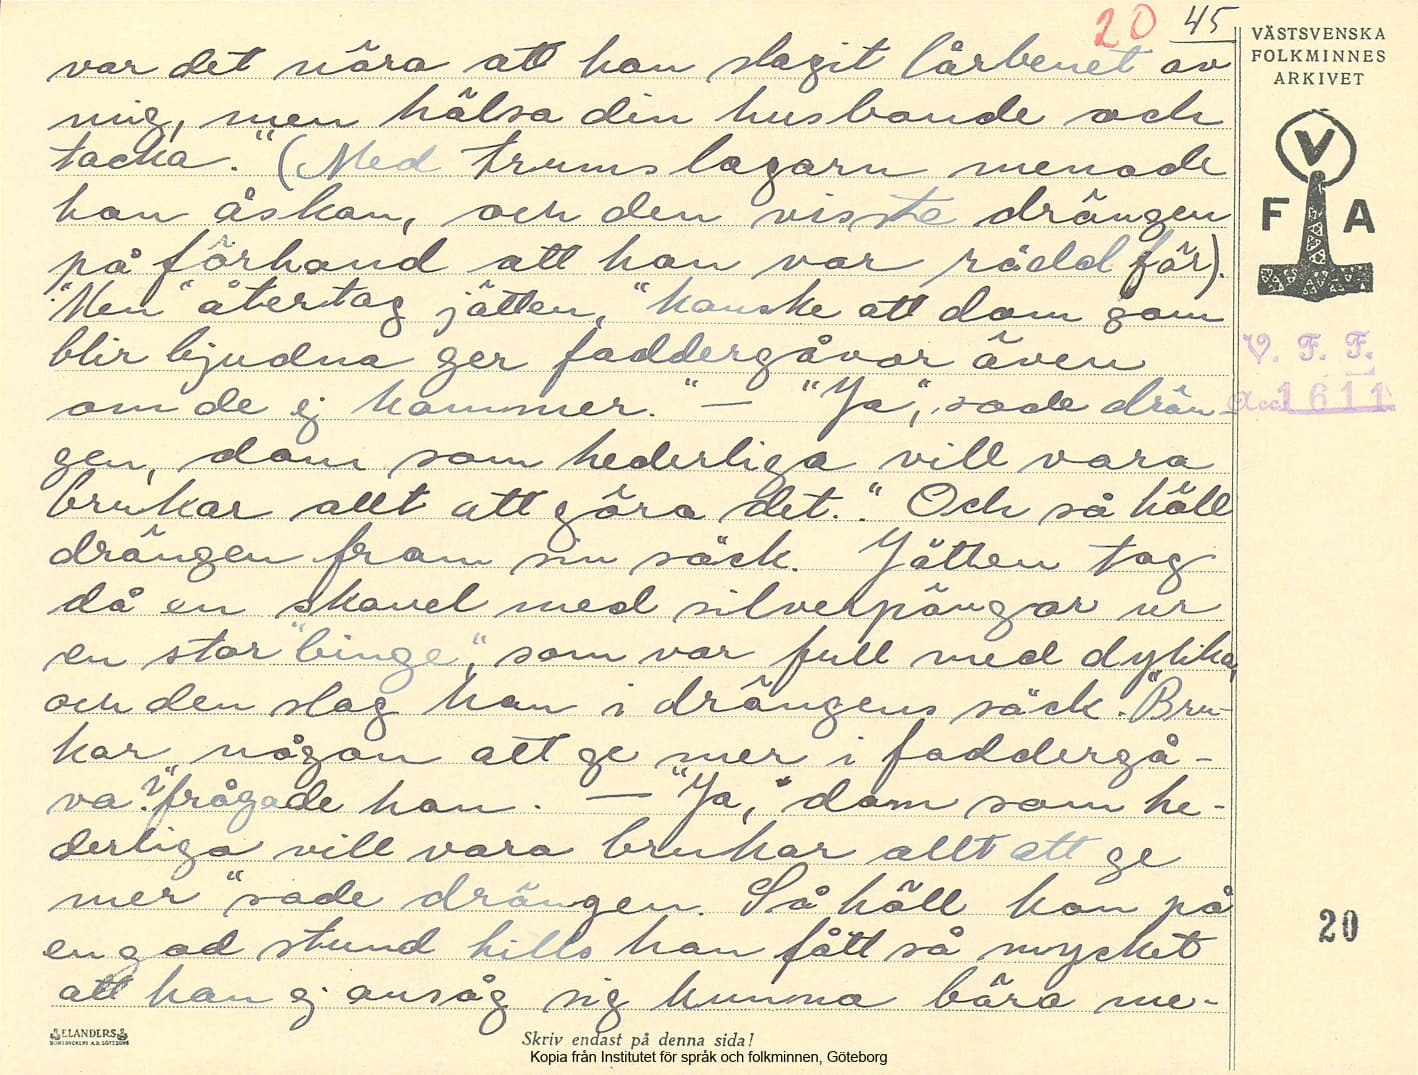 20 45
var det nära att han slagit lårbenet av
mig, men hälsa din husbonde och
tacka." (Med trumslagarn menade
han åskan, och den visste drängen
på förhand att han var rädd för).
"Men" återtog jätten, "kanske att dom som
blir bjudna ger faddergåvor även
om de ej kommer." — "Ja", sade drän-
gen, dom som hederliga vill vara
brukar allt att göra det." Och så höll
drängen fram sin säck. Jätten tog
då en skovel med silverpängar ur
en stor "binge", som var full med dylika,
och den slog han i drängens säck. "Bru-
kar någon att ge mer i faddergå-
va?" frågade han. — "Ja," dom som he-
derliga vill vara brukar allt att ge
mer" sade drängen. Så höll han på
en god stund tills han fått så mycket
att han ej ansåg sig kunna bära me-
VÄSTSVENSKA
FOLKMINNES
ARKIVET
V
F A
V. F. F.
Acc. 1611
20
ELANDERS
BOKTRYCKERI A.B. GÖTEBORG
Skriv endast på denna sida!
Kopia från Institutet för språk och folkminnen, Göteborg